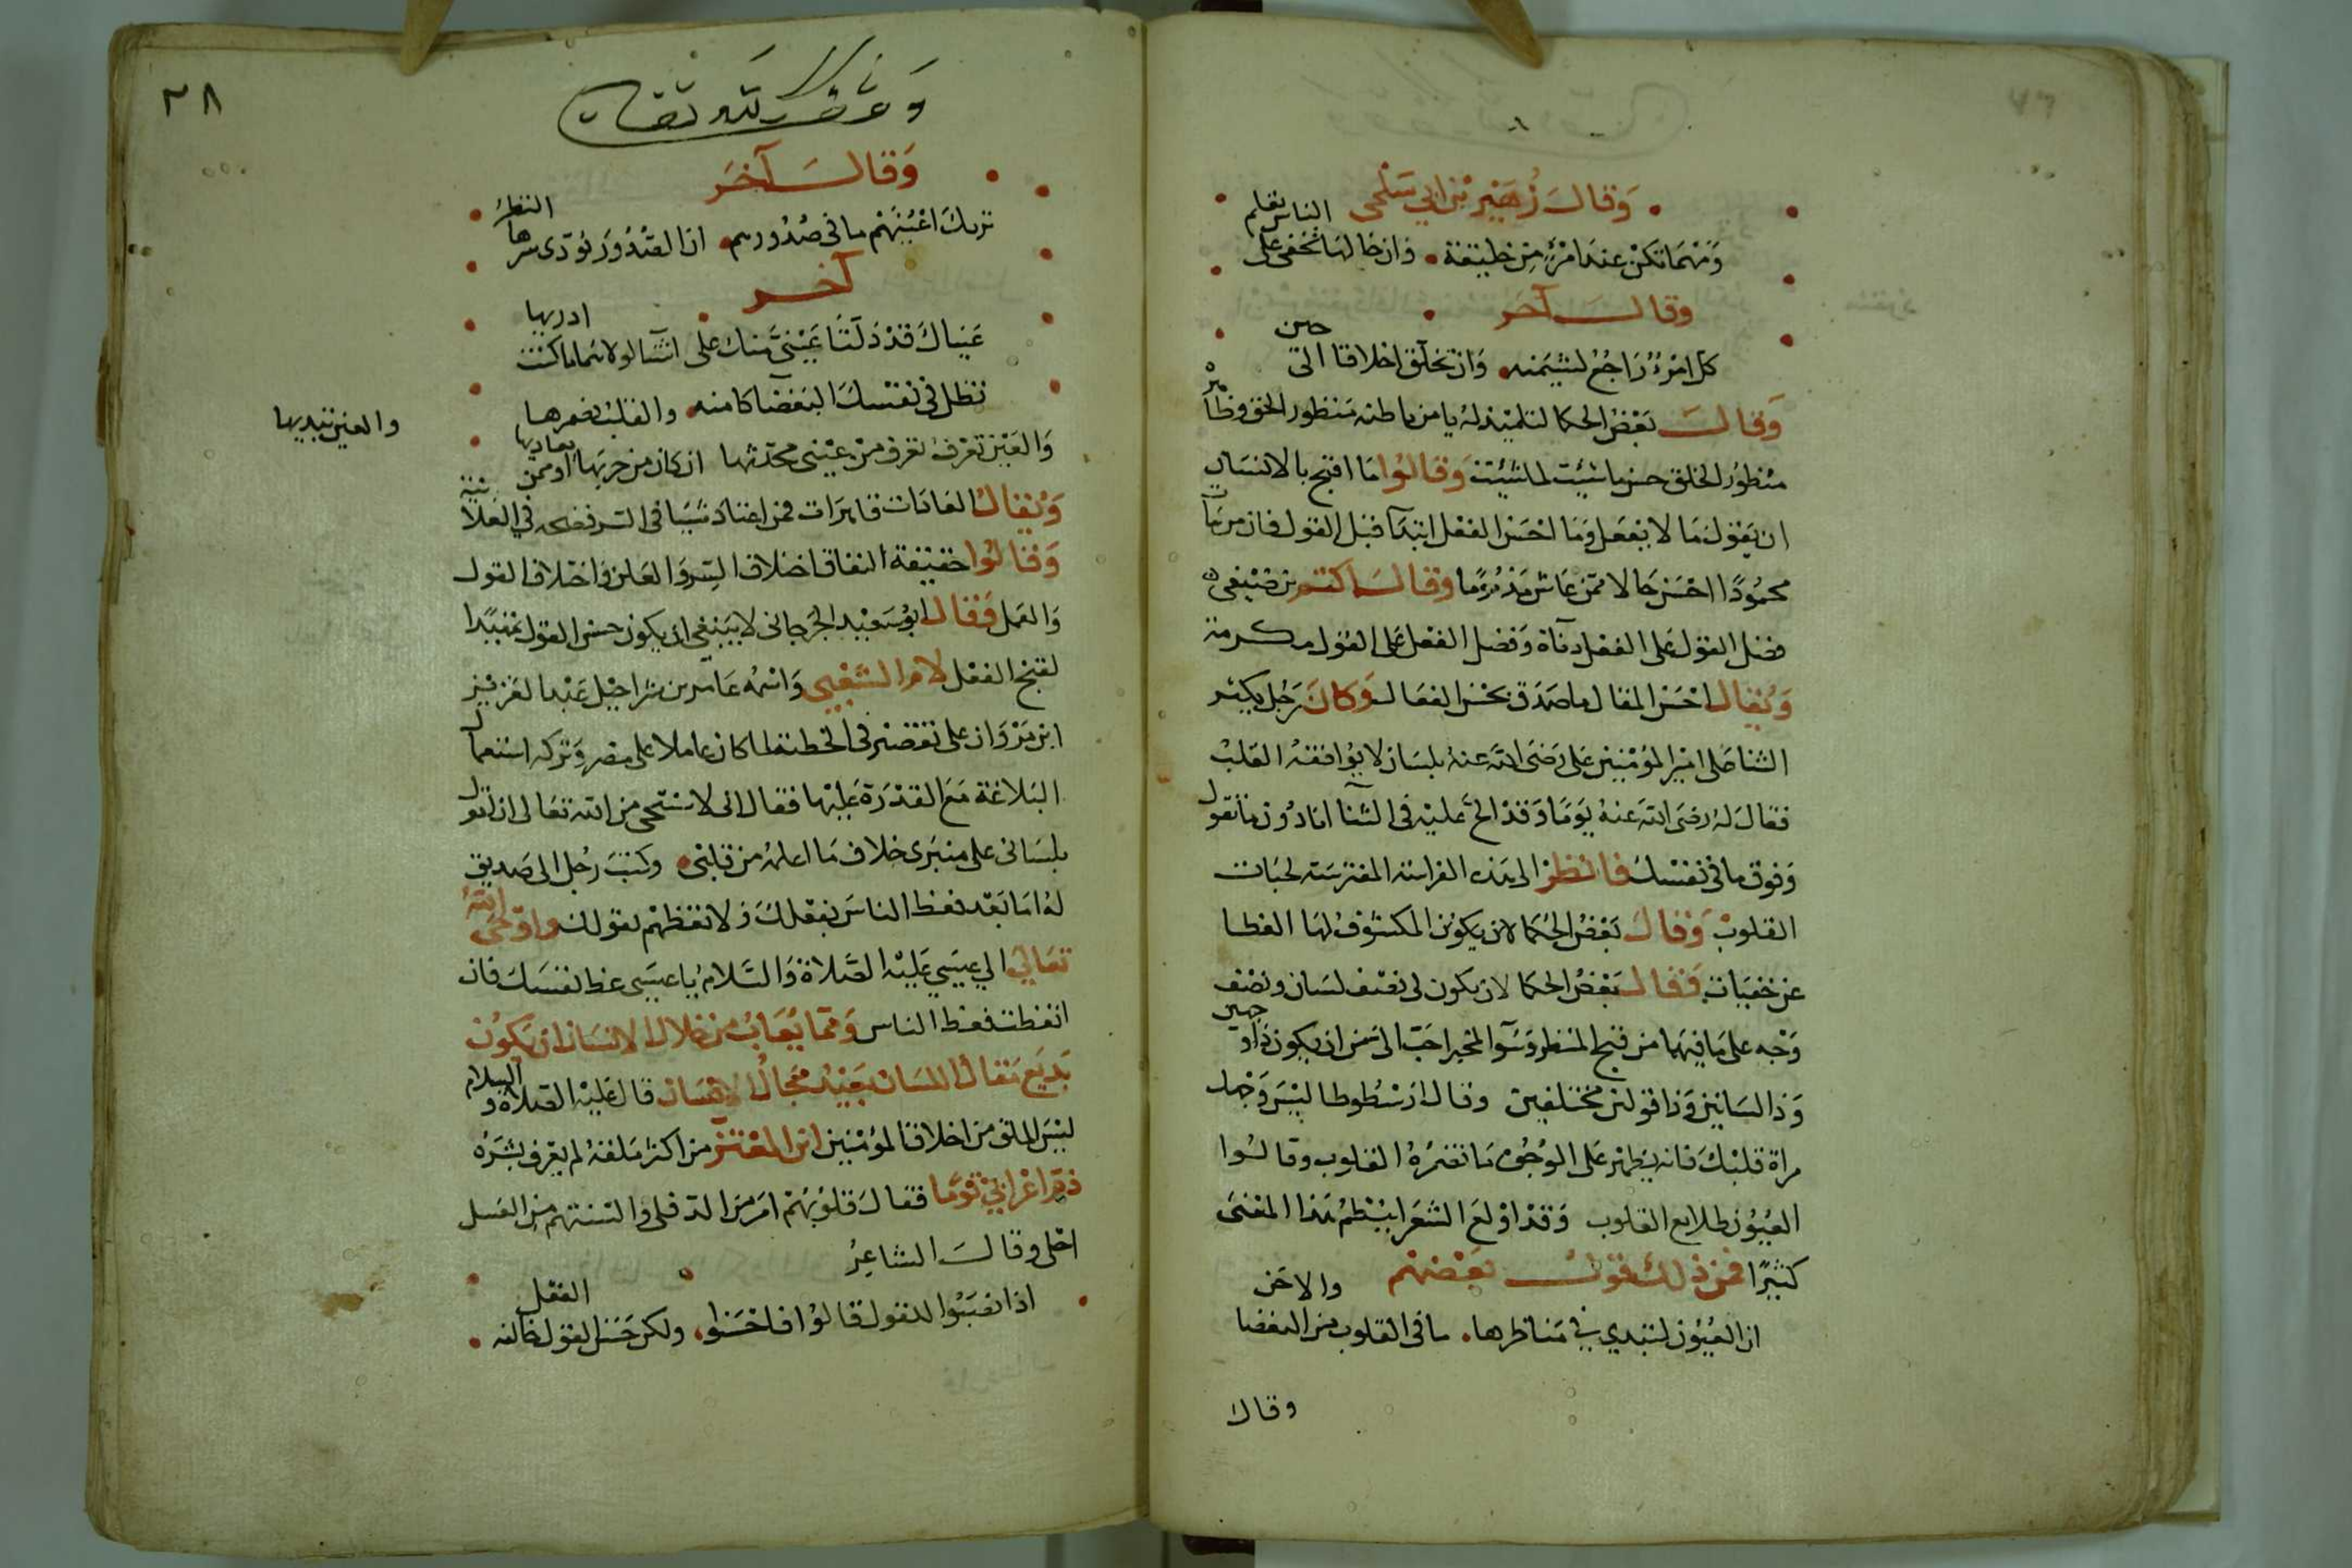 وَقالَ زُهَيْر بن ابي سَلْمى
وَمَهْمَا تكنْ عندَ امْرِئٍ مِن خليقة وان خالهَا تخفى على الناس تعلم
وقالَ آخر
كل امْرِئ رَاجعٌ لشيمته وَان تخلق اخلاقا الى حين
وَقالَ بَعْضُ الحكما لتلميذ لهُ يا من باطنه مَنظور الحق وظاهره
مَنْظوُر الخلق حسن ما شيئت لما شيئت وَقالوُا مَا اقبح بالانسَان
ان يَقول مَا لا يفعَل وَمَا احْسَن الفعْل ابتدَآ قبْل القول فان من مَات
محمُودًا احْسَن حَالا ممّن عَاش مَذمُومًا وقالَ اكثم بن صَيْفي
فضل القول عَلى الفعْل دنآة وَفضل الفعْل عَلى القول مكرمة
وَيُقال احْسَن المقال ما صَدَق بحسْن الفعَال وَكانَ رَجُل يكثر
الثنا عَلى اميْر المؤمنين على رَضى الله عنهُ بلسَان لا يوُافقهُ القلبُ
فقالَ لهُ رضى الله عنهُ يَوْمًا وَقدْ الحّ عليْه فى الثنآ انا دُون مَا تقول
وَفوق ما فى نفسْكَ فانظرْ الى هَذه الفراسة المفترسَة لخبات
القلوبْ وَقالَ بَعْضُ الحُكمَا لان يكوُن المكشوُف لهَا الغطا
عن خفيَات وَقالَ بَعْضُ الحكما لان يكون لى نصْف لسَان ونصْف
وَجْه على مَا فيهمَا من قبح المنظر وَسُوآ المخبر احَبّ الىّ من ان يكون ذا وجهين
وَذا لسَانين وَذا قولين مختلفين وقال ارَسْطُوطا ليْسَ وَجهك
مراة قلبْكَ فانه يظهَر عَلى الوُجُوه مَا تضمرُهُ القلوب وقالوُا
العيُوُن طلايع القلوب وَقدْ اوْلعَ الشعَرا بنظم هَذا المعْنى
كثيرًا فمن ذلكَ قول بَعْضهم
ان العيُوُن لتبدي في مَناظرها ما فى القلوب من البغضا والاحَن
وقال
٣٨
وَقف لله تعالى
وَقالَ آخَر
تريكَ اعْيُنَهُمْ ما فى صُدُورهم ان الصُدُورَ يؤدّى سرها النظرُ
آخر
عَيْناكَ قدْ دَلتا عَيْنىّ منكَ على اشيا لولاهما ما كنت ادريها
تظل فى نفسْكَ البَغضَآ كامنه والقلبُ يضمرها والعين تبديها
وَالعَيْن تعْرفُ تعرف منْ عيْنى محدّثها ان كان من حزبهَا او ممن يعاديها
وَيُقالُ العَادَات قاهرَات فمن اعتاد شيَا فى السّر فضحه في العَلانيَة
وَقالوُا حقيْقة النفاق اختلاف السِّر وَالعَلن وَاختلاف القول
وَالعمَل وَقال ابوُ سَعيْد الجُرجانى لا يَنبغى ان يكون حسن القول تمهيدا
لقبح الفعْل لامَ الشعْبي وَاسْمُه عَامر بن شراحيْل عَبْد العَزيْز
ابن مَرْوَان على تقصيْر فى الخطبَة لما كان عاملا على مصر وَتركه استعمآل
البلاغة مَعَ القدْرَة عَليْها فقال انى لا سْتحى من الله تعَالى ان اقول
بلسَانى على منبرى خلاف مَا اعلمُ من قلبْى وكتبَ رَجُل الى صَديق
لهُ امَا بَعْد فعظ الناسَ بفعْلكَ وَلا تعظهمْ بقولكَ واوْحَى اللهُ
تعَالي الي عيسَي عَليْه الصَّلاة وَالسَّلامُ يا عيسَى عظ نفسَكَ فان
اتعظت فعظ الناس وَممّا يُعَابُ من خلال الانسَان ان يَكوُن
بَديَع مَقال اللسَان بَعيْد مَجَال الاحسَان قال عَليْه الصَّلاة والسلام
ليْسَ الملق من اخلاق المؤمنين ابن المعْتز من اكثر مَلقهُ لم يعرف بشرَهُ
ذمّ اعْرَابيّ قوْمًا فقال قلوُبهُمْ امَرّ من الدفلى وَالسنتهم من العَسل
احْلى وقالَ الشاعِرُ
اذا نصَبُوا للقول قالوُا فاحْسَنوُا ولكن حُسْن القول خالفه الفعْل